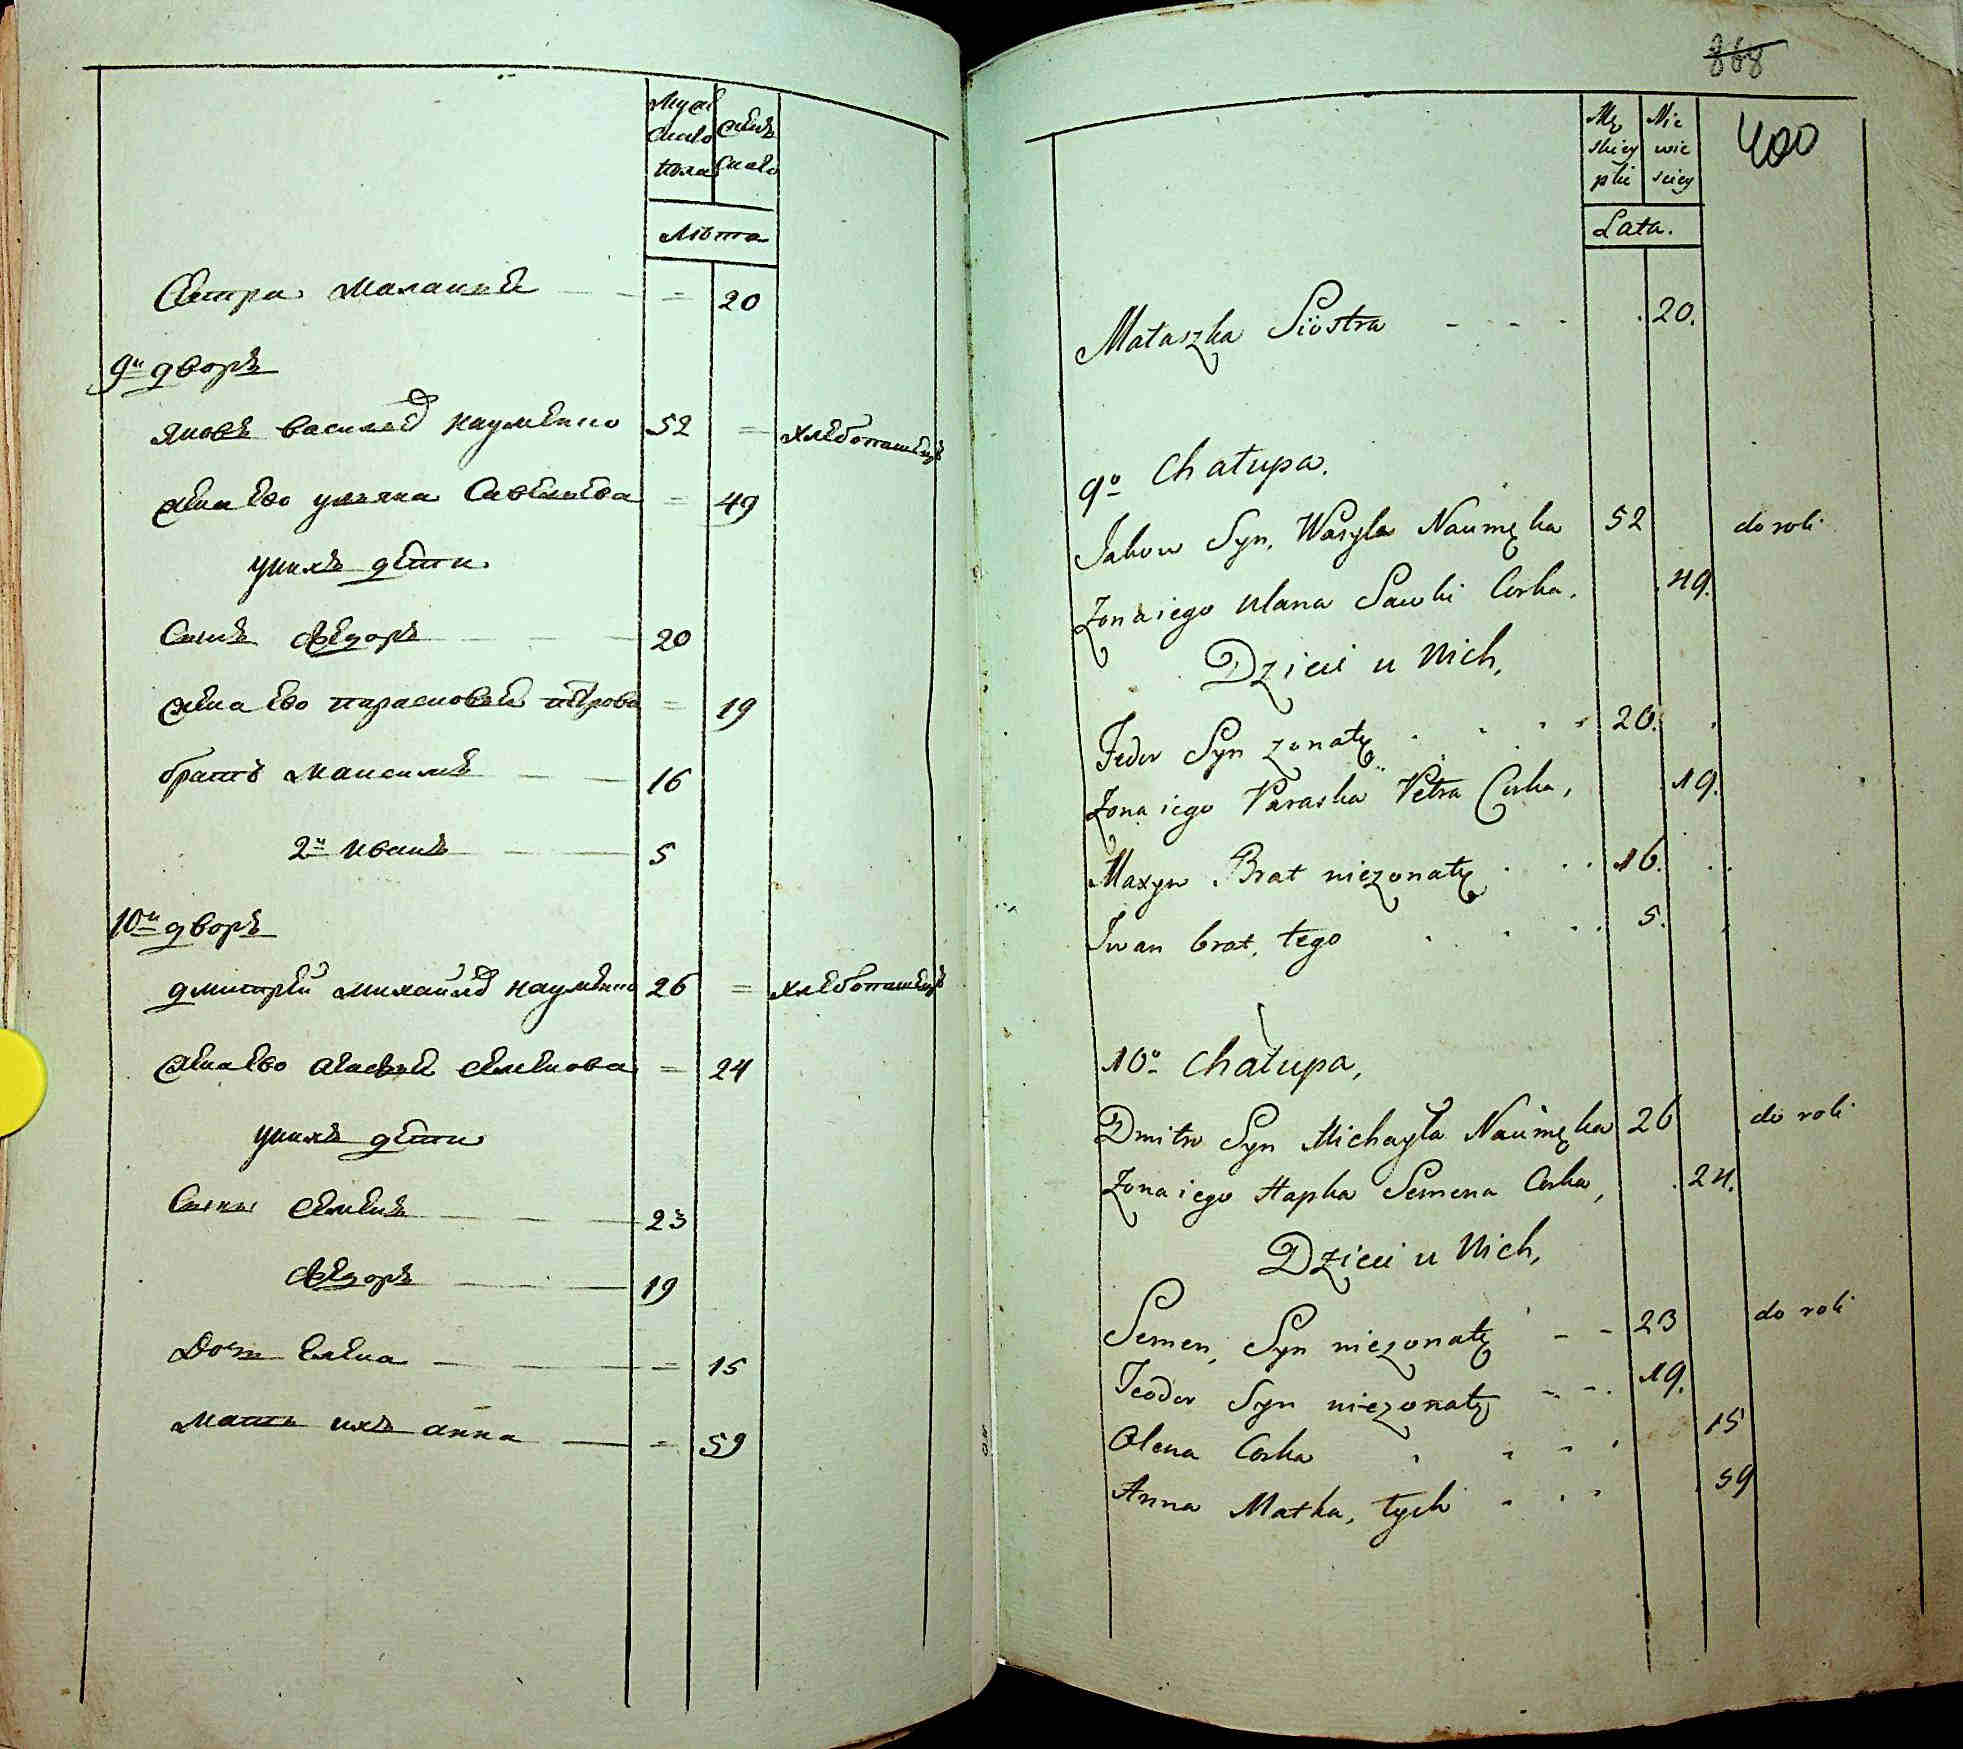 Муж
скаго
пола
женъ
скаго
Лѣта
Сестра Маланья — = 20
9й дворъ
Яковъ Василев Наумѣнко 52 = хлебопашецъ
жена ево Ульяна Савельева = 49
у нихъ дети
Сынъ Федоръ — 20
жена ево Парасковея Петрова = 19
братъ Максимъ — 16
2й Иванъ — 5
10й дворъ
Дмитрей Михайлов Наумѣнко 26 = хлебопашецъ
жена ево Агафья Семенова = 24
у нихъ дети
Сыны Семенъ — 23
Федоръ — 19
Дочь Елена — = 15
Мать ихъ Анна — = 59
868
400
Mę
skiey
płci
Nie
wie
sciey
Lata.
Mataszka Siostra - - - . 20.
9o Chałupa.
Jakow Syn, Wasyla Naumęka 52 do roli
Zona iego Ulana Sawki Corka. 49.
Dzieci u Nich,
Fedor Syn zonaty . . . 20.
Zona iego Paraska Petra Corka, 19.
Maxym Brat niezonaty . . . 16.
Iwan brat, tego . . . 5.
10o Chałupa,
Dmitro Syn Michayła Naumęka 26 do roli
Zona iego Hapka Semena Corka, . 24.
Dzieci u Nich,
Semen, Syn niezonaty - - 23 do roli
Teodor Syn niezonaty - - . 19.
Olena Corka . . . 15
Anna Matka, tych . . . 59